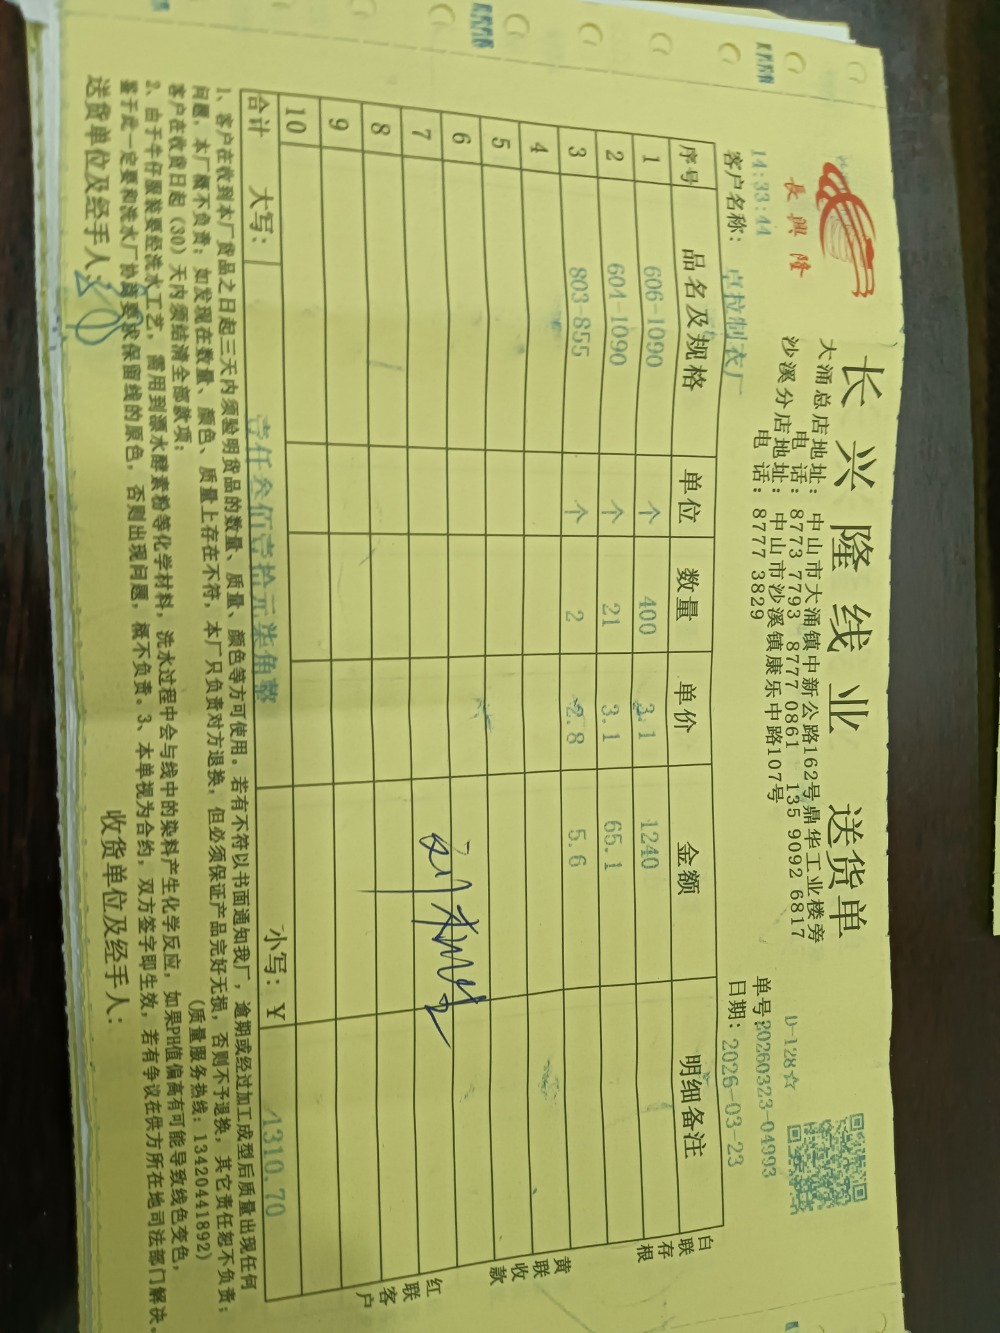 长兴隆线业 送货单
長興隆
大涌总店地址：中山市大涌镇中新公路162号鼎华工业楼旁
电话：8773 7793 8777 0861 135 9092 6817
沙溪分店地址：中山市沙溪镇康乐中路107号
电话：8777 3829
D-128☆
14:33:44
单号：20260323-04993
客户名称：卓拉制衣厂
日期：2026-03-23
序号 品名及规格 单位 数量 单价 金额 明细备注
1 606-1090 个 400 3.1 1240
2 604-1090 个 21 3.1 65.1
3 803-855 个 2 2.8 5.6
4
5
6
7
8
9
10
合计 大写：壹仟叁佰壹拾元柒角整 小写：￥1310.70
白联存根
黄联收款
红联客户
1、客户在收到本厂货品之日起三天内须验明货品的数量、质量、颜色等方可使用。若有不符以书面通知我厂，逾期或经过加工成型后质量出现任何
问题，本厂概不负责；如发现在数量、颜色、质量上存在不符，本厂只负责对方退换，但必须保证产品完好无损，否则不予退换，其它责任恕不负责；
客户在收货日起（30）天内须结清全部款项； （质量服务热线：13420441892）
2、由于牛仔服装要经洗水工艺，需用到漂水酵素粉等化学材料，洗水过程中会与线中的染料产生化学反应，如果PH值偏高有可能导致线色变色，
鉴于此一定要和洗水厂协商要求保留线的原色，否则出现问题，概不负责。3、本单视为合约，双方签字即生效，若有争议在供方所在地司法部门解决。
送货单位及经手人： 收货单位及经手人：